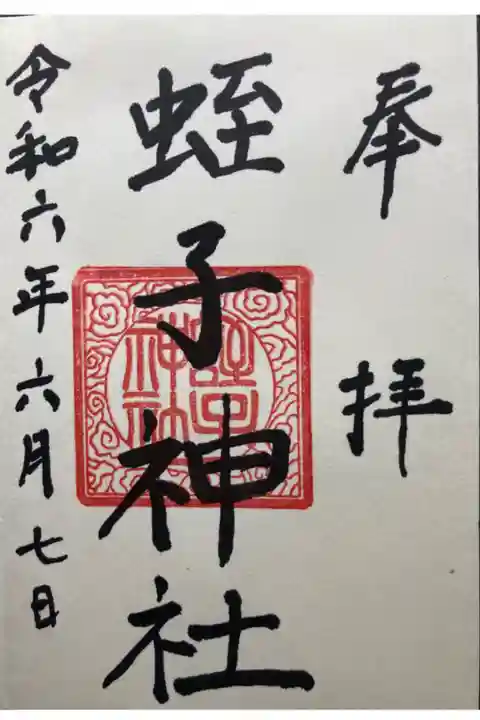 奉拝
蛭子神社
蛭子神社
令和六年六月七日